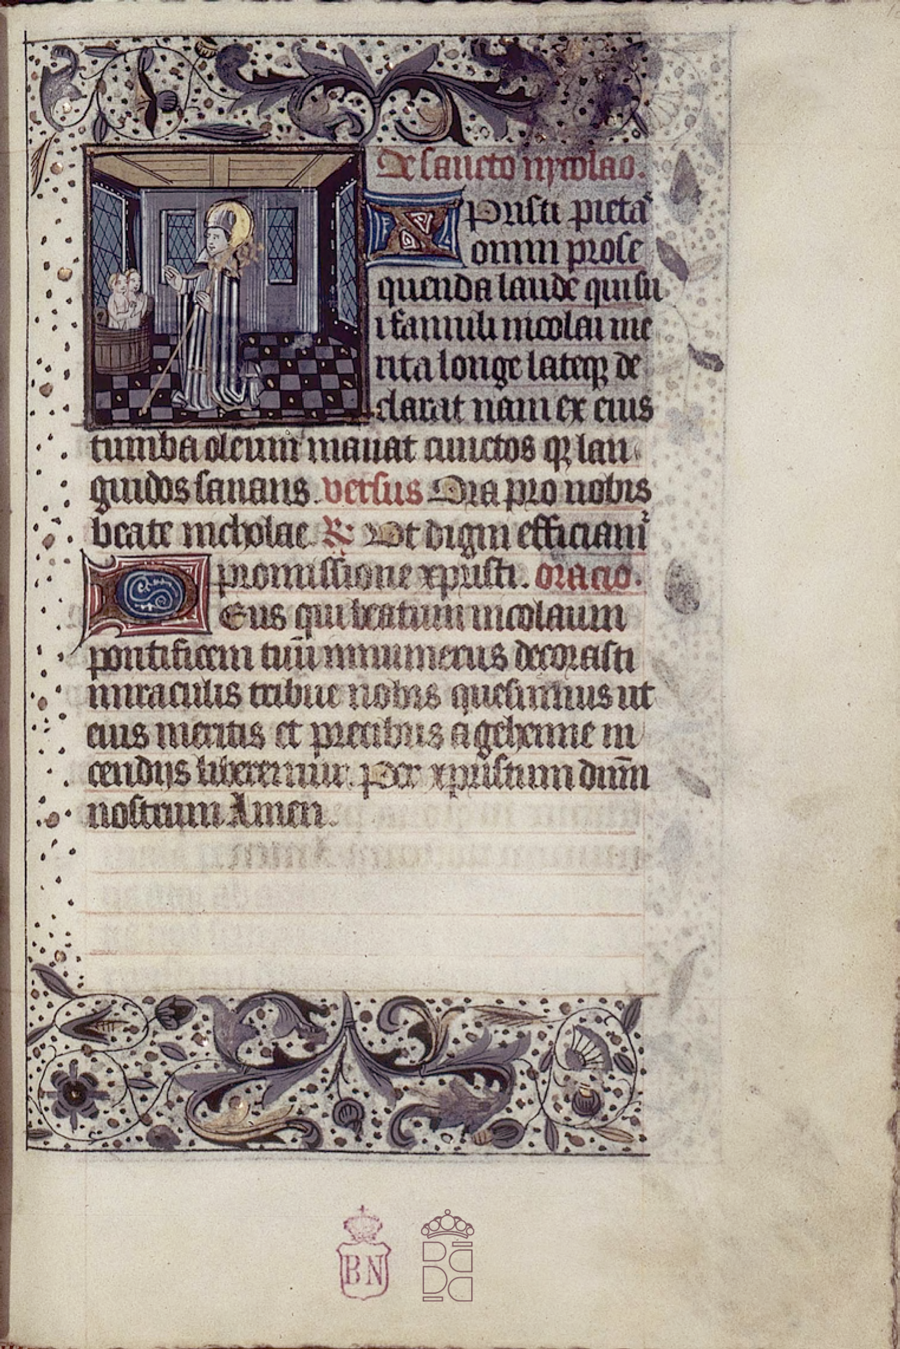 De sancto nycolao.
Xpristi pieta
omni prose
quenda laude qui su
i famuli nicolai me
rita longe lateqꝫ de
clarat nam ex eius
tumba oleum manat cunctos qꝫ lan
guidos sanans. versus Ora pro nobis
beate nicholae. R̃ Ut digni efficiam̄
promissione xpristi. oracio.
Deus qui beatum nicolaum
pontificem tuū innumeris decorasti
miraculis tribue nobis quesumus ut
eius meritis et precibus a gehenne in
cendijs liberemur. Per xpristum dnm̄
nostrum Amen.
BN